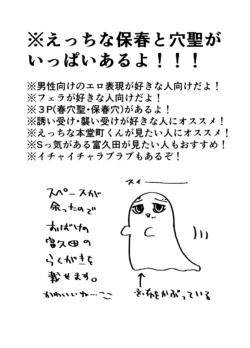 ※えっちな保春と穴聖が
いっぱいあるよ！！！
※男性向けのエロ表現が好きな人向けだよ！
※フェラが好きな人向けだよ！
※３Ｐ(春穴聖・保春穴)があるよ！
※誘い受け・襲い受けが好きな人にオススメ！
※えっちな本堂町くんが見たい人にオススメ！
※Ｓっ気がある富久田が見たい人もおすすめ！
※イチャイチャラブラブもあるぞ！
スィーー
スペースが
余ったので
おばけの
富久田の
らくがきを
載せます。
かわいいね…
布をかぶっている